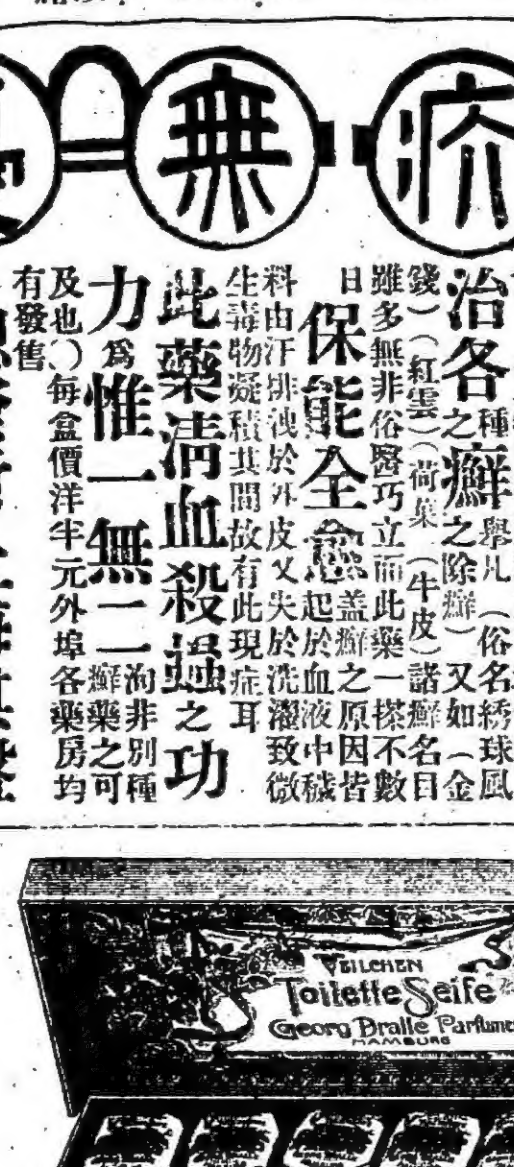 疥無
治各種之癬舉凡(俗名綉球風
之除癬)又如(金
錢)(紅雲)(荷葉)(牛皮)諸癬名目
雖多無非俗醫巧立而此藥一搽不數
日保能全愈蓋癬之原因皆
起於血液中穢
料由汗排洩於外皮又失於洗濯致微
生毒物凝積其間故有此現症耳
此藥清血殺蟲之功
力為惟一無二洵非別種
癬藥之可
及也)每盒價洋半元外埠各藥房均
有發售
VEILCHEN
Toilette Seife
Georg Dralle Parfume
HAMBURG